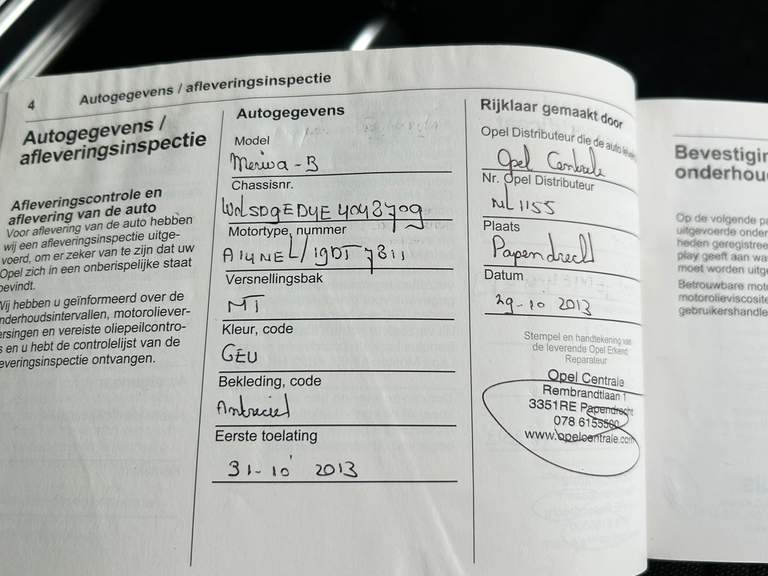 4 Autogegevens / afleveringsinspectie
Autogegevens /
afleveringsinspectie
Afleveringscontrole en
aflevering van de auto
Voor aflevering van de auto hebben
wij een afleveringsinspectie uitge-
voerd, om er zeker van te zijn dat uw
Opel zich in een onberispelijke staat
bevindt.
Wij hebben u geïnformeerd over de
onderhoudsintervallen, motoroliever-
ersingen en vereiste oliepeilcontro-
s en u hebt de controlelijst van de
everingsinspectie ontvangen.
Autogegevens
Model
Meriva-B
Chassisnr.
W0LSD9EDYE4043709
Motortype, nummer
A14NEL/19DT7811
Versnellingsbak
MT
Kleur, code
GEU
Bekleding, code
Antraciet
Eerste toelating
31-10 2013
Rijklaar gemaakt door
Opel Distributeur die de auto
Opel Centrale
Nr. Opel Distributeur
NL1155
Plaats
Papendrecht
Datum
29-10 2013
Stempel en handtekening van
de leverende Opel Erkend
Reparateur
Opel Centrale
Rembrandtlaan 1
3351RE Papendrecht
078 6155500
www.opelcentrale.com
Bevestigin
onderhou
Op de volgende pa
uitgevoerde onder
heden geregistree
play geeft aan wa
moet worden uitge
Betrouwbare moto
motorolieviscosite
gebruikershandle